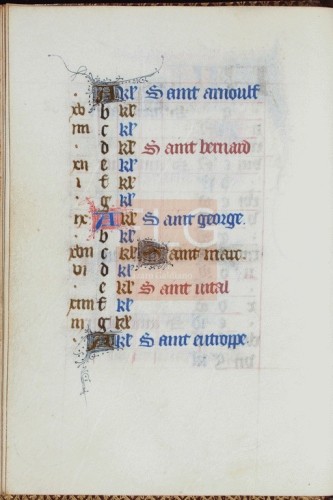 · A kl' Saint arnoult
xv b kl'
iiii c kl'
· d kl' Saint bernard
xii e kl'
i f kl'
· g kl'
ix A kl' Saint george
· b kl'
xvii c kl' Saint marc
vi d kl'
· e kl' Saint vital
xiiii f kl'
iii g kl'
· A kl' Saint eutroppe